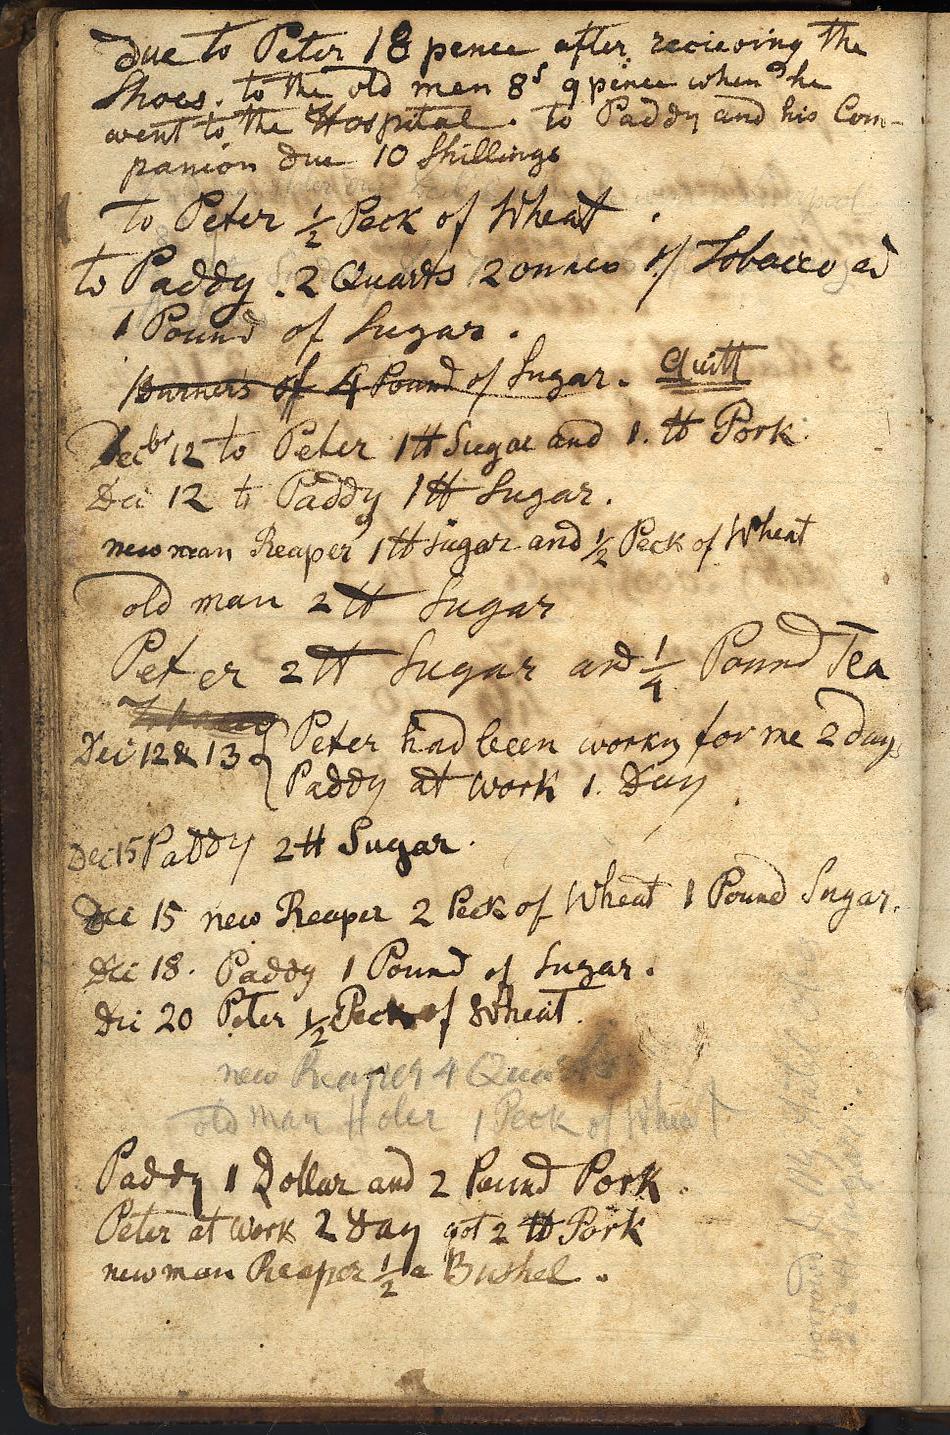 due to Peter 18 pence after recieving the
Shoes. to the old man 8s 9 pence when he
went to the Hospital. to Paddy and his Com-
panion due 10 Shillings
to Peter 1/2 Peck of Wheat.
to Paddy. 2 Quarts 2 ounces of Tobacco ad
1 Pound of Sugar.
of 4 Pound of Sugar. Quitt
Decbr 12 to Peter 1 ℔ Sugar and 1. ℔ Pork.
Dec 12 to Paddy 1 ℔ Sugar.
new man Reaper 1 ℔ Sugar and 1/2 Peck of Wheat
old man 2 ℔ Sugar
Peter 2 ℔ Sugar and 1/4 Pound Tea
Dec 12 & 13 { Peter had been workg for me 2 days
Paddy at work 1. Day
Dec 15 Paddy 2 ℔ Sugar.
Dec 15 new Reaper 2 Peck of Wheat 1 Pound Sugar.
Dec 18. Paddy 1 Pound of Sugar.
Dec 20 Peter 1/2 Peck of Wheat.
new Reaper 4 Quarts
old man 1 Peck of Wheat
Paddy 1 Dollar and 2 Pound Pork.
Peter at work 2 Day got 2 ℔ Pork
new man Reaper 1/2 a Bushel.